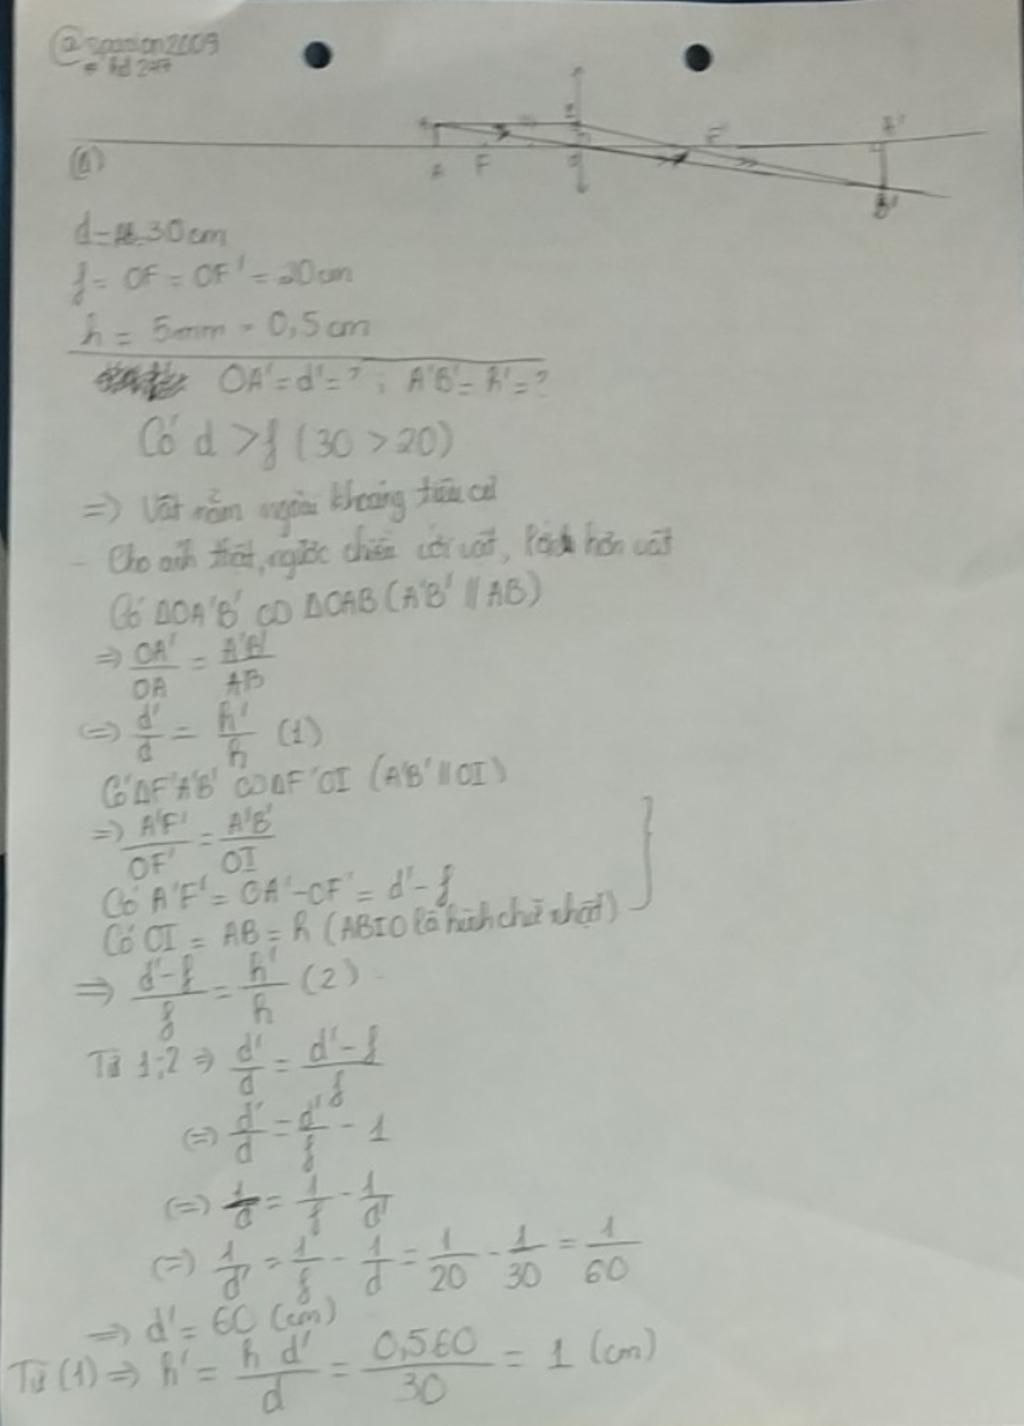 @spacion2009
# hd 247
B I A'
A F O F' B'
(A)
d = 30cm
f = OF = OF' = 20cm
h = 5mm = 0,5cm
OA' = d' = ? ; A'B' = h' = ?
Có d > f (30 > 20)
=> Vật nằm ngoài khoảng tiêu cự
- Cho ảnh thật, ngược chiều với vật, lớn hơn vật
Có ΔOA'B' ∽ ΔOAB (A'B' // AB)
=> OA'/OA = A'B'/AB
<=> d'/d = h'/h (1)
Có ΔF'A'B' ∽ ΔF'OI (A'B' // OI)
=> A'F'/OF' = A'B'/OI
Có A'F' = OA' - OF' = d' - f
Có OI = AB = h (ABIO là hình chữ nhật)
=> (d' - f)/f = h'/h (2)
Từ 1;2 => d'/d = (d' - f)/f
<=> d'/d = d'/f - 1
<=> 1/d = 1/f - 1/d'
<=> 1/d' = 1/f - 1/d = 1/20 - 1/30 = 1/60
=> d' = 60 (cm)
Từ (1) => h' = h d'/d = 0,5 60/30 = 1 (cm)